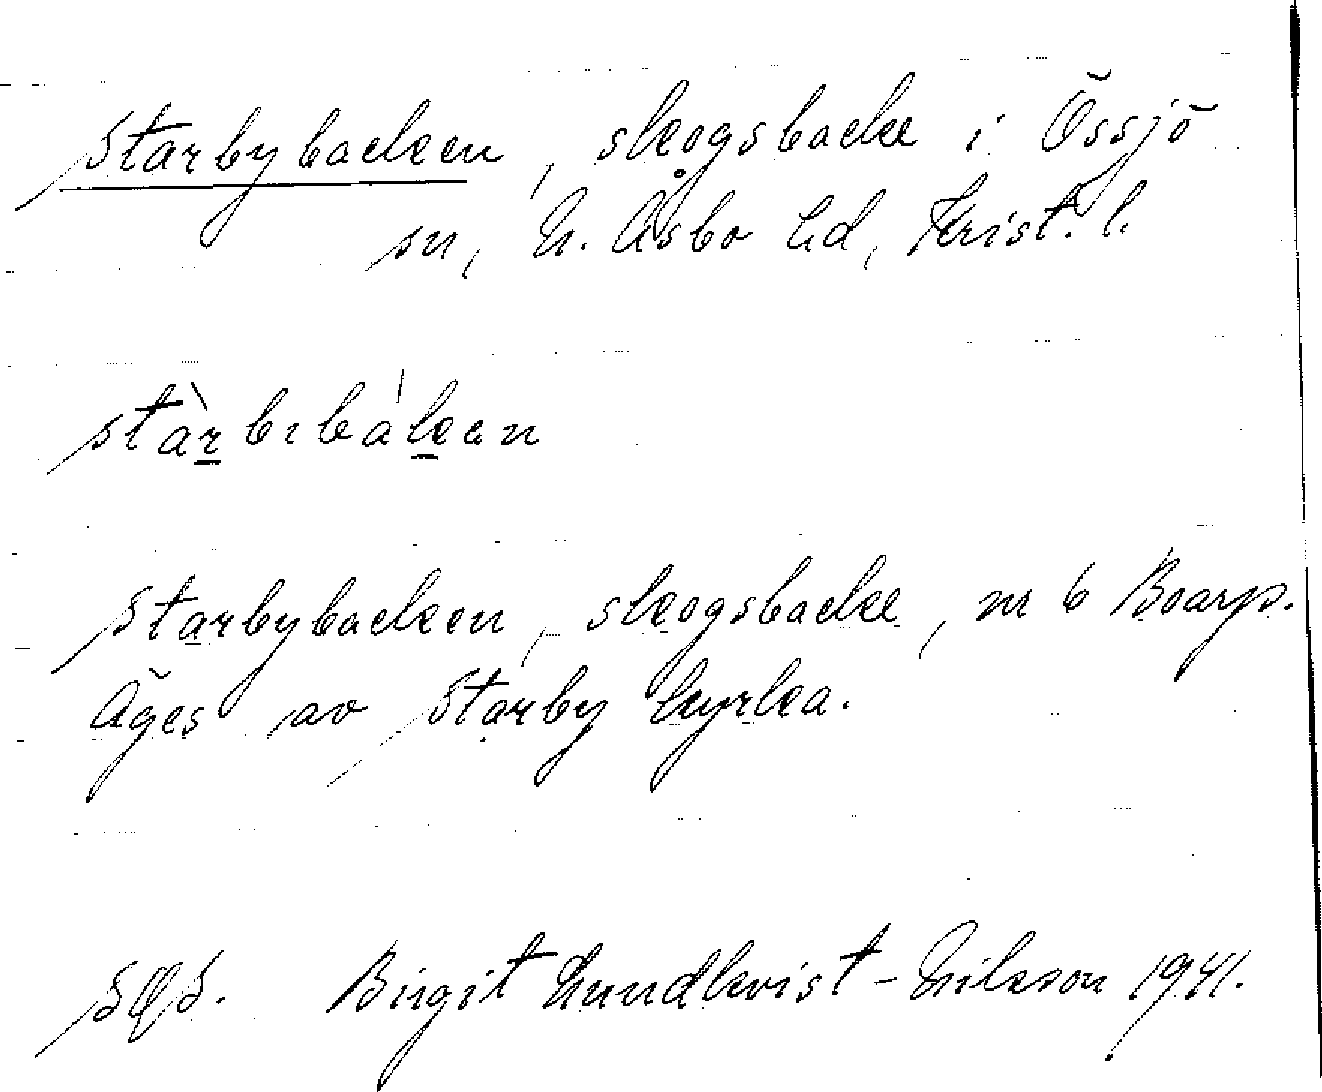 Starbybacken, skogsbacke i Össjö
sn, N. Åsbo hd, Krist. l.
stàrbıbákan
Starbybacken, skogsbacke, nr 6 Boarp.
Äges av Starby kyrka.
SOS. Birgit Lundkvist-Nilsson 1941.